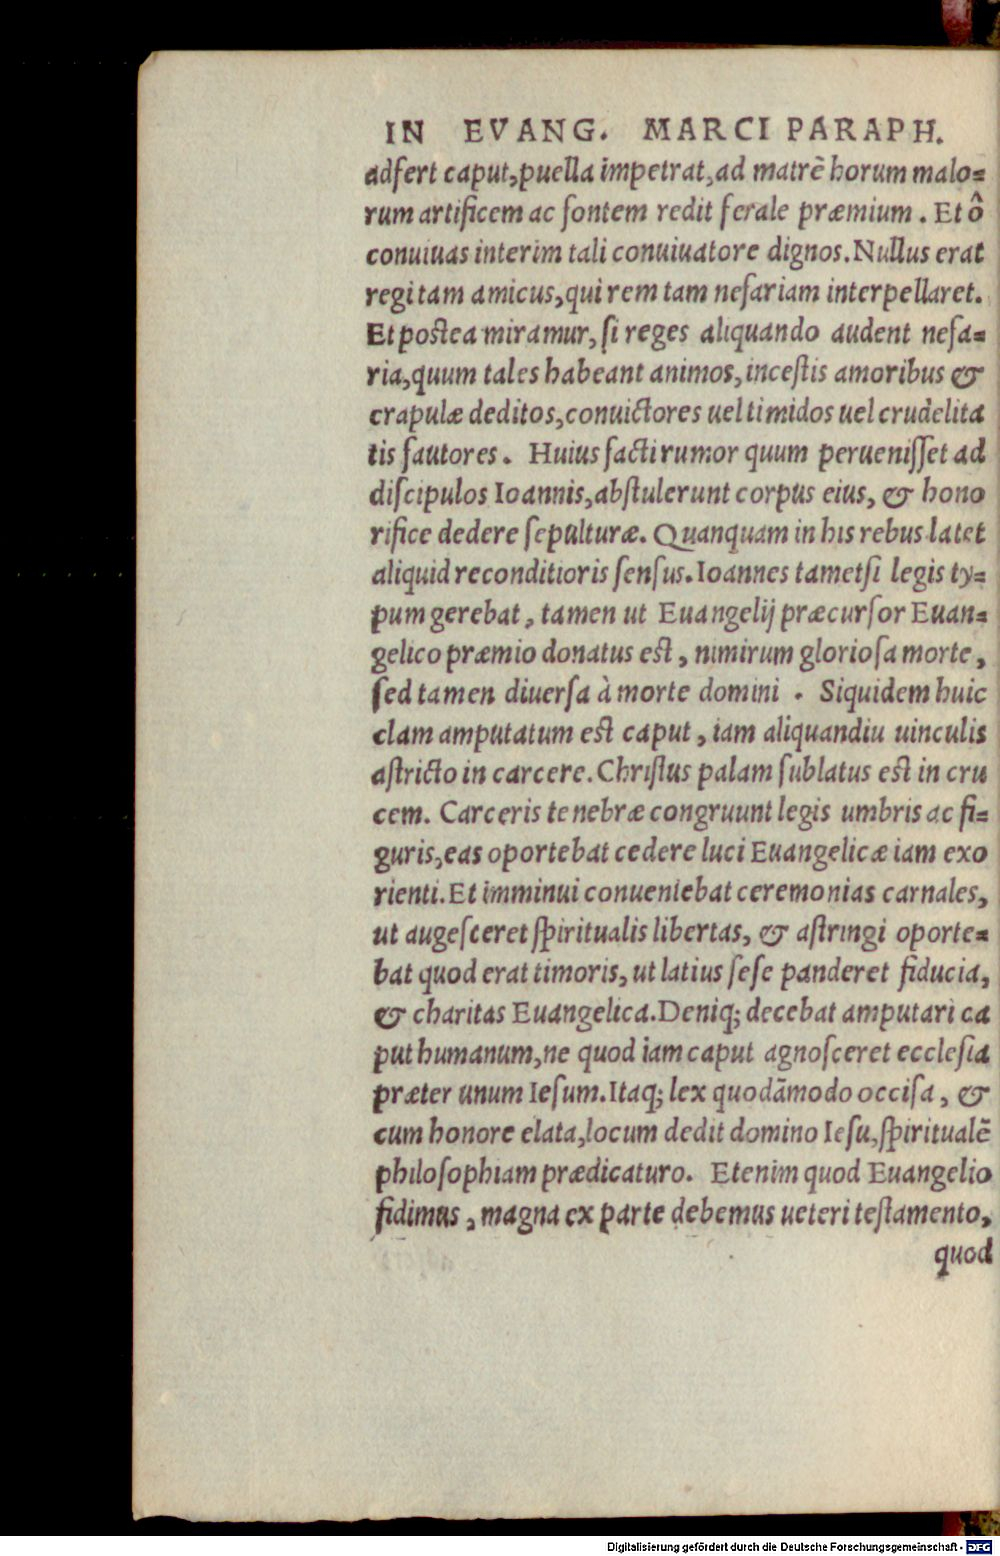 IN EVANG. MARCI PARAPH.
adfert caput,puella impetrat,ad matrẽ horum malo=
rum artificem ac fontem redit ferale præmium. Et ô
conuiuas interim tali conuiuatore dignos.Nullus erat
regi tam amicus,qui rem tam nefariam interpellaret.
Et postea miramur, ſi reges aliquando audent nefa=
ria,quum tales habeant animos,inceſtis amoribus &
crapulæ deditos,conuictores uel timidos uel crudelita
tis fautores. Huius facti rumor quum perueniſſet ad
diſcipulos Ioannis,abſtulerunt corpus eius, & hono
rifice dedere ſepulturæ. Quanquam in his rebus latet
aliquid reconditioris ſenſus.Ioannes tametſi legis ty=
pum gerebat, tamen ut Euangelij præcurſor Euan=
gelico præmio donatus est, nimirum glorioſa morte,
ſed tamen diuerſa à morte domini. Siquidem huic
clam amputatum est caput, iam aliquandiu uinculis
aſtricto in carcere.Chriſtus palam ſublatus est in cru
cem. Carceris tenebræ congruunt legis umbris ac fi=
guris,eas oportebat cedere luci Euangelicæ iam exo
rienti.Et imminui conueniebat ceremonias carnales,
ut augeſceret ſpiritualis libertas, & aſtringi oporte=
bat quod erat timoris, ut latius ſeſe panderet fiducia,
& charitas Euangelica.Deniq; decebat amputari ca
put humanum,ne quod iam caput agnoſceret eccleſia
præter unum Ieſum.Itaq; lex quodãmodo occiſa, &
cum honore elata,locum dedit domino Ieſu,ſpiritualẽ
philoſophiam prædicaturo. Etenim quod Euangelio
fidimus, magna ex parte debemus ueteri teſtamento,
quod
Digitalisierung gefördert durch die Deutsche Forschungsgemeinschaft - DFG